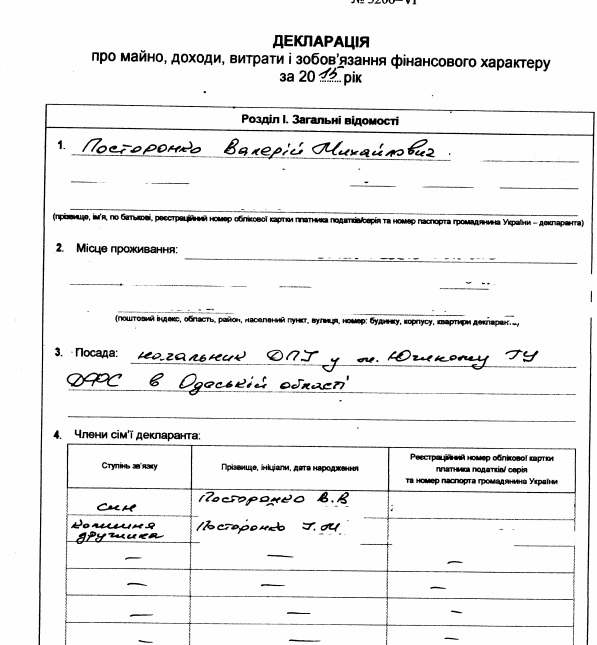 № 3206–VI
ДЕКЛАРАЦІЯ
про майно, доходи, витрати і зобов'язання фінансового характеру
за 2015 рік
Розділ I. Загальні відомості
1. Посторонко Валерій Михайлович
(прізвище, ім'я, по батькові, реєстраційний номер облікової картки платника податків/серія та номер паспорта громадянина України – декларанта)
2. Місце проживання:
(поштовий індекс, область, район, населений пункт, вулиця, номер: будинку, корпусу, квартири декларан
3. Посада: начальник ДПІ у м. Южному ГУ
ДФС в Одеській області
4. Члени сім'ї декларанта:
Ступінь зв'язку
Прізвище, ініціали, дата народження
Реєстраційний номер облікової картки
платника податків/ серія
та номер паспорта громадянина України
син Посторонко В.В
колишня Посторонко Т.М
дружина
— — —
— — —
— — —
— — —